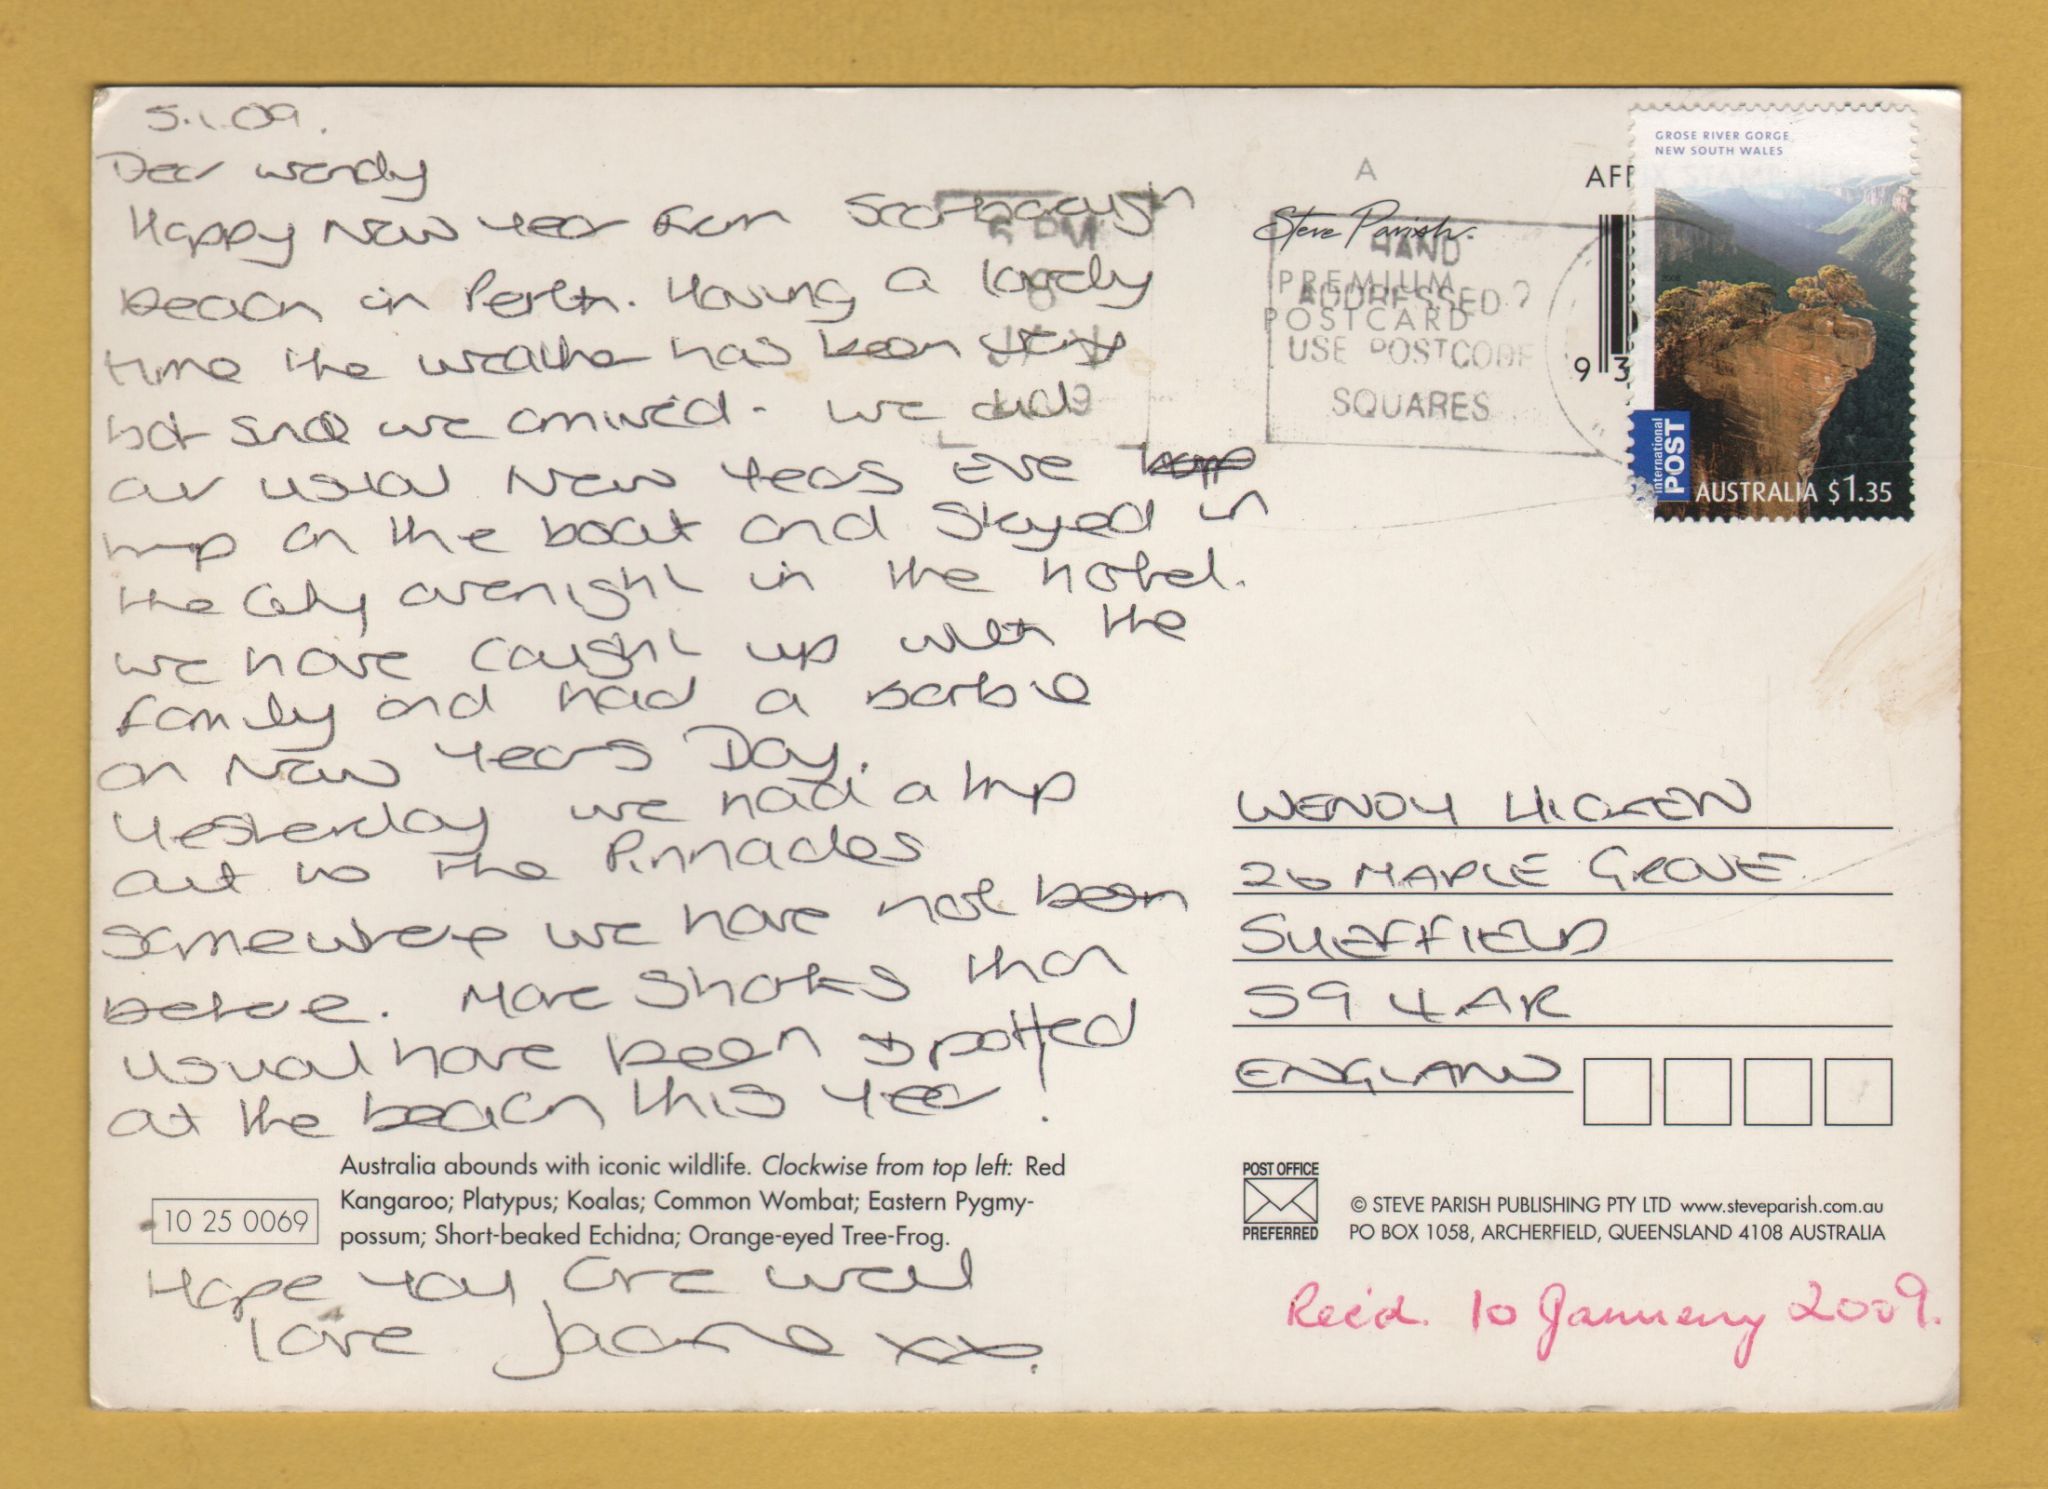 5.1.09.
Dear Wendy
Happy New Year from Scarborough
Beach in Perth. Having a lovely
time the weather has been very
hot since we arrived. We did
our usual New Years Eve
trip on the boat and stayed in
the City overnight in the hotel.
we have caught up with the
family and had a barbie
on New Years Day.
Yesterday we had a trip
out to the Pinnacles
somewhere we have not been
before. More sharks than
usual have been spotted
at the beach this year!
Australia abounds with iconic wildlife. Clockwise from top left: Red
Kangaroo; Platypus; Koalas; Common Wombat; Eastern Pygmy-
possum; Short-beaked Echidna; Orange-eyed Tree-Frog.
10 25 0069
Hope you are well
love Joanne xxx.
A
Steve Parish.
PREMIUM
POSTCARD
AFFIX STAMP HERE
9 3
6 PM
HAND
ADDRESSED?
USE POSTCODE
SQUARES
GROSE RIVER GORGE
NEW SOUTH WALES
International
POST
AUSTRALIA $1.35
WENDY HICKEN
26 MAPLE GROVE
SHEFFIELD
S9 4AR
ENGLAND
POST OFFICE
PREFERRED
© STEVE PARISH PUBLISHING PTY LTD www.steveparish.com.au
PO BOX 1058, ARCHERFIELD, QUEENSLAND 4108 AUSTRALIA
Rec'd. 10 January 2009.